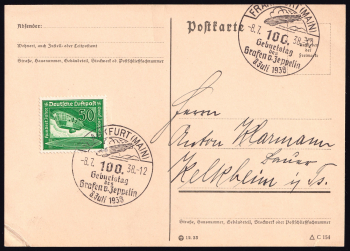 Absender:
Wohnort, auch Zustell- oder Leitpostamt
Straße, Hausnummer, Gebäudeteil, Stockwerk od. Postschließfachnummer
Postkarte
FRANKFURT (MAIN)
-8.7. 38.-12
100.
Geburtstag
des
Grafen v. Zeppelin
8 Juli 1938
Deutsche Luftpost
50
FRANKFURT (MAIN)
-8.7. 38.-12
100.
Geburtstag
des
Grafen v. Zeppelin
8 Juli 1938
Herrn
Anton Harmann
Kelkheim i/Ts.
Straße, Hausnummer, Gebäudeteil, Stockwerk oder Postschließfachnummer
C 154